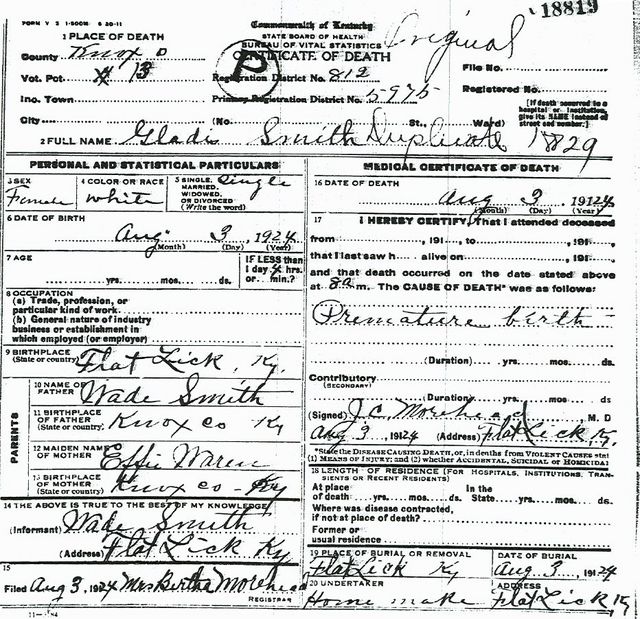 FORM V. S 1-500M 6 20-11
18819
Commonwealth of Kentucky
STATE BOARD OF HEALTH
BUREAU OF VITAL STATISTICS
CERTIFICATE OF DEATH
Original
P
1 PLACE OF DEATH
County Knox
Vot. Pct # 13
Inc. Town
City (No. St., Ward)
Registration District No. 812
Primary Registration District No. 5975
File No.
Registered No.
[If death occurred in a hospital or institution, give its NAME instead of street and number.]
2 FULL NAME Gladis Smith Duplicate 1829
PERSONAL AND STATISTICAL PARTICULARS
3 SEX Female
4 COLOR OR RACE White
5 SINGLE, MARRIED, WIDOWED, OR DIVORCED (Write the word) Single
6 DATE OF BIRTH
Aug 3, 1924
(Month) (Day) (Year)
7 AGE
yrs. mos. ds.
IF LESS than 1 day 4 hrs. or min.?
8 OCCUPATION
(a) Trade, profession, or particular kind of work
(b) General nature of industry business or establishment in which employed (or employer)
9 BIRTHPLACE (State or country) Flat Lick, Ky.
PARENTS
10 NAME OF FATHER Wade Smith
11 BIRTHPLACE OF FATHER (State or country) Knox co Ky
12 MAIDEN NAME OF MOTHER Effie Waren
13 BIRTHPLACE OF MOTHER (State or country) Knox co Ky
14 THE ABOVE IS TRUE TO THE BEST OF MY KNOWLEDGE
(Informant) Wade Smith
(Address) Flat Lick Ky
15
Filed Aug 3, 1924 Mrs Bertha Morehead
REGISTRAR
11-3184
MEDICAL CERTIFICATE OF DEATH
16 DATE OF DEATH
Aug 3, 19124
(Month) (Day) (Year)
17 I HEREBY CERTIFY, That I attended deceased
from , 191 , to , 191 ,
that I last saw h alive on , 191 ,
and that death occurred on the date stated above
at 8 a m. The CAUSE OF DEATH* was as follows:
Premature birth
(Duration) yrs. mos. ds
Contributory
(SECONDARY)
(Duration) yrs. mos. ds
(Signed) J. C. Morehead M. D
Aug 3, 19124 (Address) Flat Lick Ky.
*State the DISEASE CAUSING DEATH, or, in deaths from VIOLENT CAUSES stat
(1) MEANS OF INJURY; and (2) whether ACCIDENTAL, SUICIDAL or HOMICIDAL
18 LENGTH OF RESIDENCE (FOR HOSPITALS, INSTITUTIONS, TRANSIENTS OR RECENT RESIDENTS)
At place of death yrs. mos. ds. In the State yrs. mos. ds
Where was disease contracted, if not at place of death?
Former or usual residence
19 PLACE OF BURIAL OR REMOVAL Flat Lick Ky
DATE OF BURIAL Aug 3, 19124
20 UNDERTAKER Home make
ADDRESS Flat Lick Ky